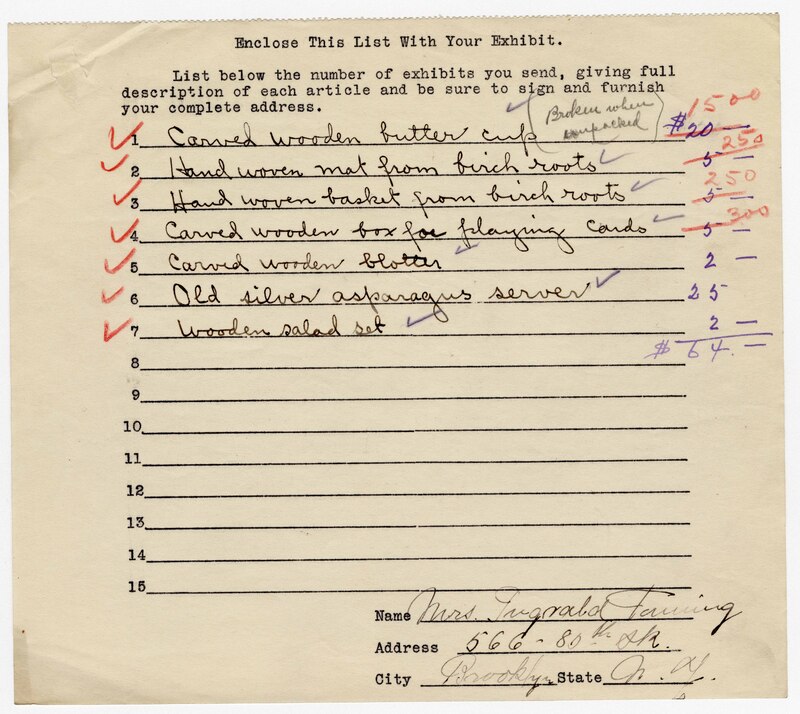 Enclose This List With Your Exhibit.
List below the number of exhibits you send, giving full
description of each article and be sure to sign and furnish
your complete address.
(Broken when
unpacked)
1 Carved wooden butter cup $20 — 1500
2 Hand woven mat from birch roots 5 — 250
3 Hand woven basket from birch roots 5 — 250
4 Carved wooden box for playing cards 5 — 300
5 Carved wooden blotter 2 —
6 Old silver asparagus server 25
7 Wooden salad set 2 —
8 $64.—
9
10
11
12
13
14
15
Name Mrs.
Address 566 - 80th Str.
City Brooklyn State N. Y.